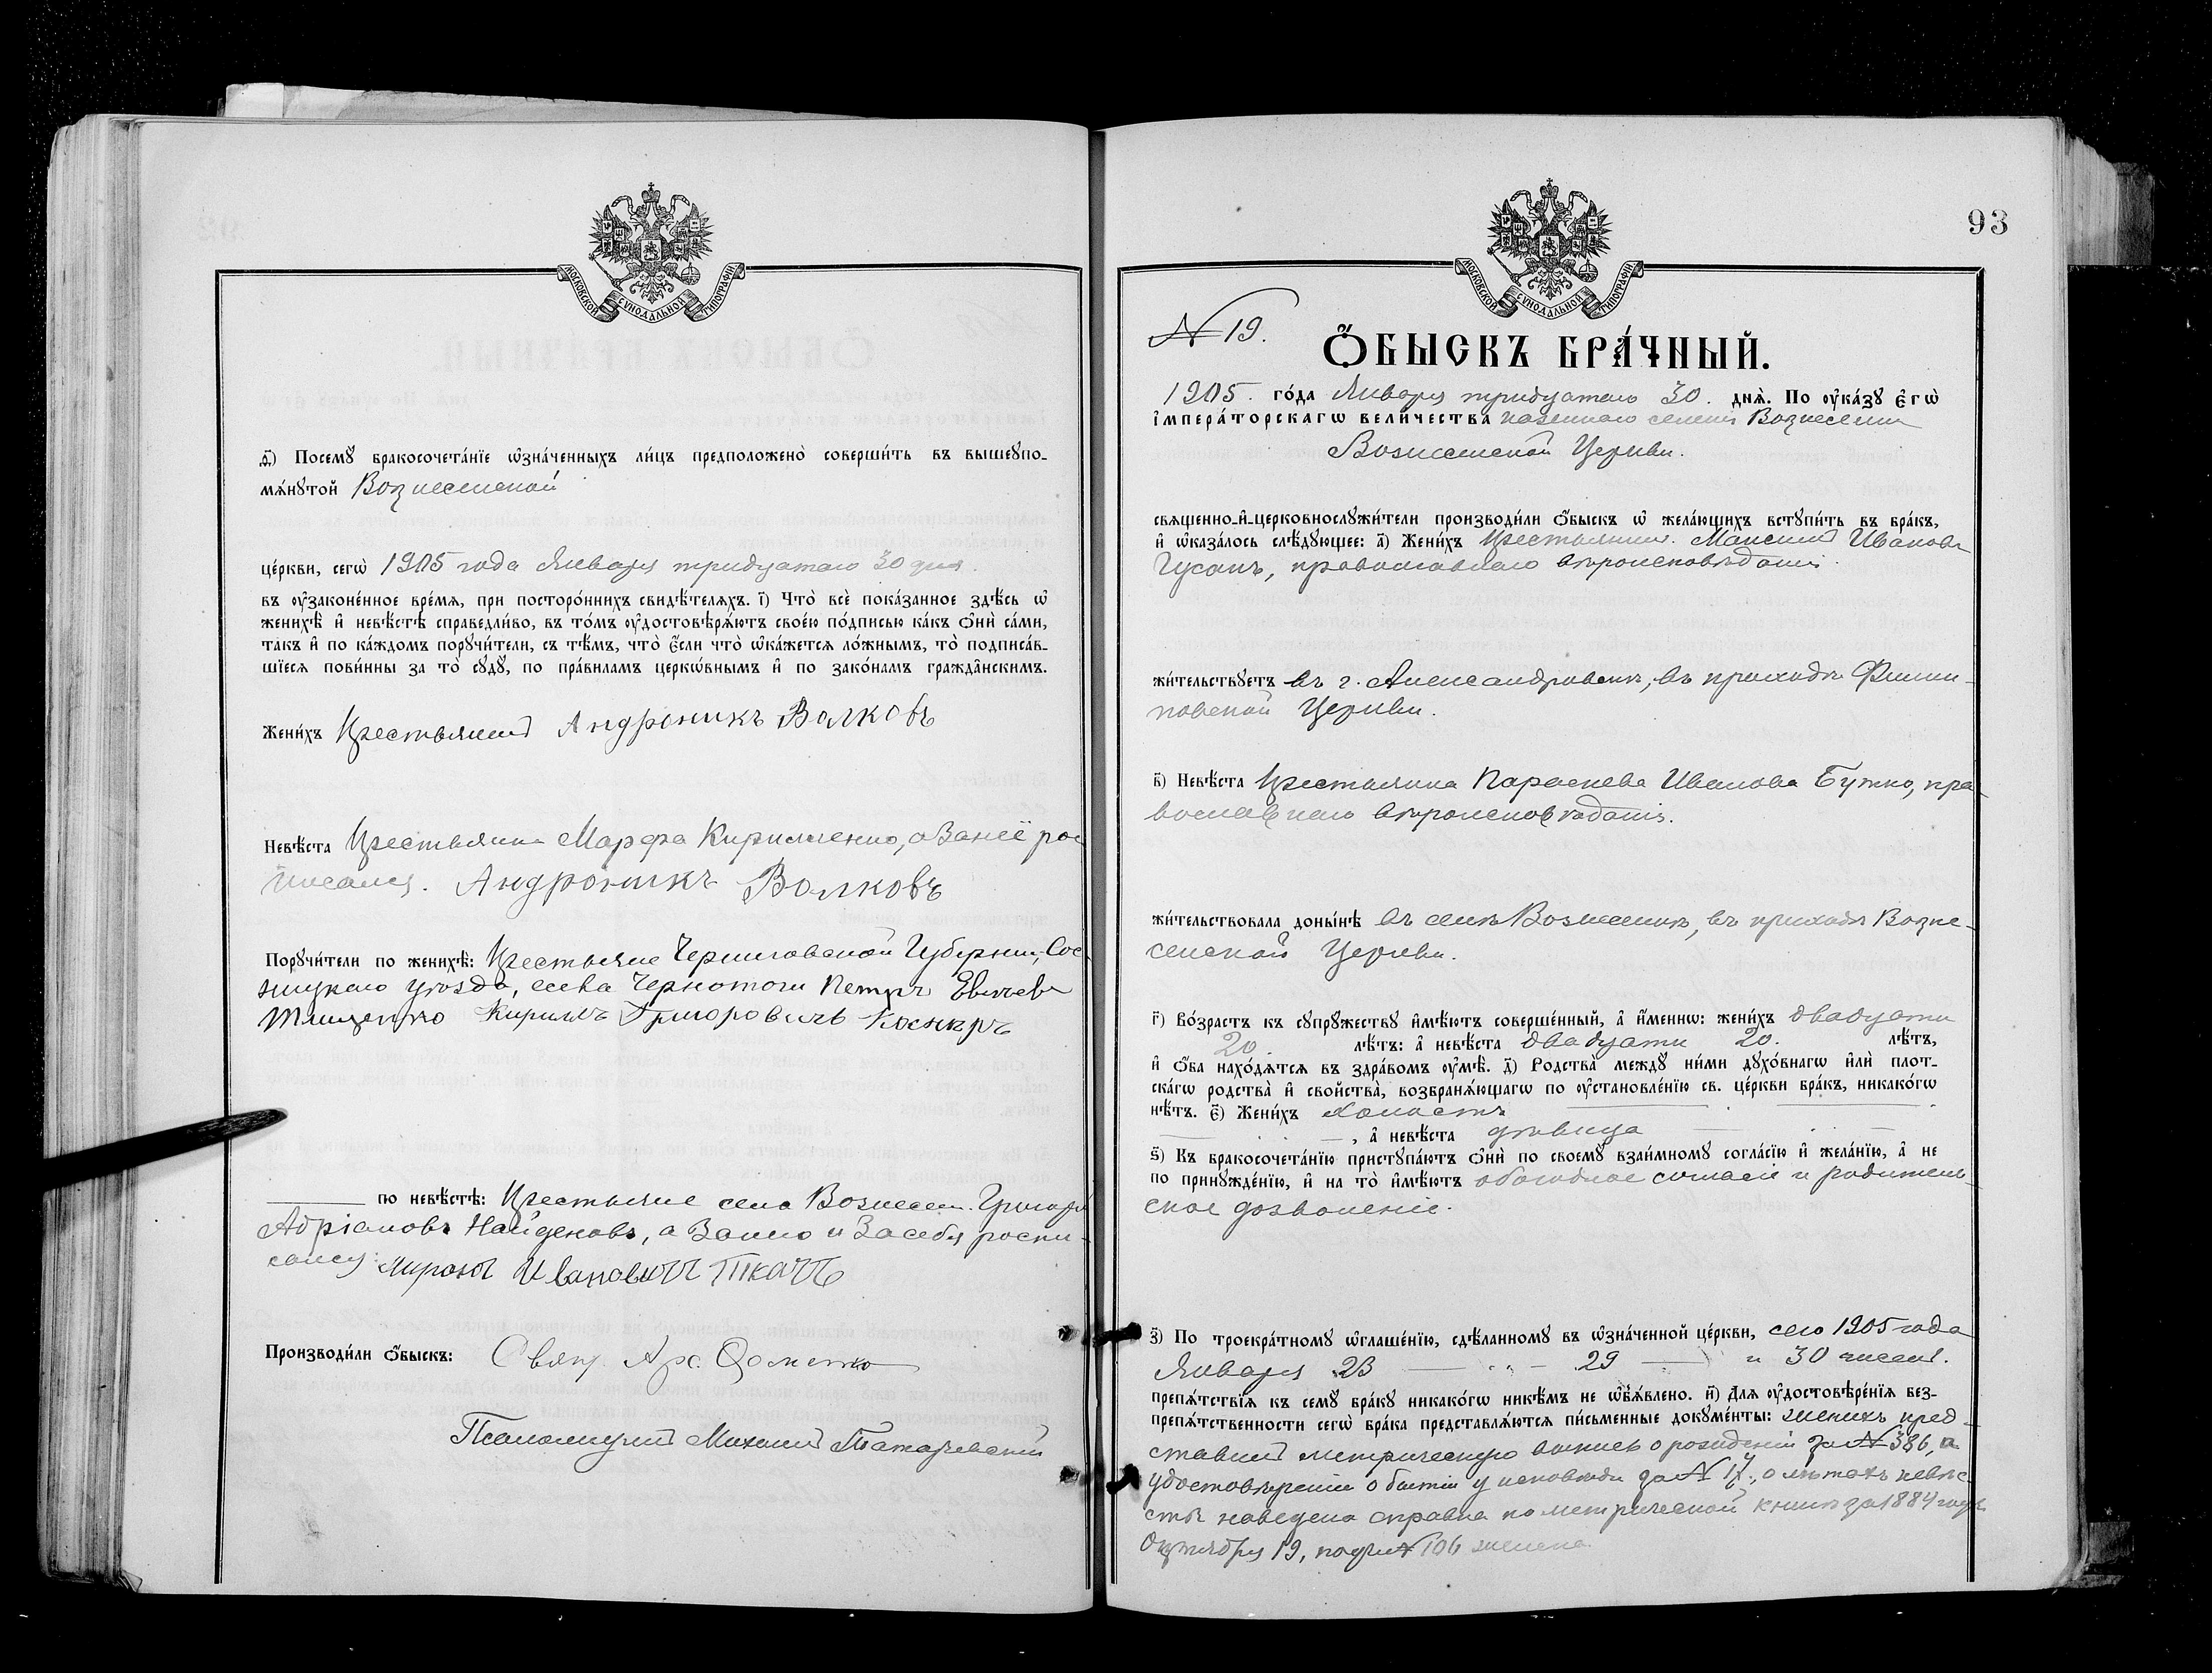 МОСКОВСКОЙ СѴНОДАЛЬНОЙ ТИПОГРАФІИ
ѳ҃) Посемꙋ̀ бракосочета́нїе ѡ҆зна́ченныхъ ли́цъ предположено̀ соверши́ть въ вышеꙋпо-
мѧ́нꙋтой Вознесенской
це́ркви, сегѡ̀ 1905 года Января тридцатаго 30 дня.
въ ᲂу҆законе́нное вре́мѧ, при посторо́ннихъ свидѣ́телѧхъ. і҃) Что̀ всѐ пока́занное здѣ́сь ѡ҆
женихѣ̀ и҆ невѣ́стѣ справедли́во, въ то́мъ ᲂу҆достовѣрѧ́ютъ свое́ю по́дписью ка́къ ѻ҆нѝ са́ми,
та́къ и҆ по ка́ждомъ порꙋчи́тели, съ тѣ́мъ, что̀ є҆́сли что̀ ѡ҆ка́жетсѧ ло́жнымъ, то̀ подписа́в-
шїесѧ пови́нны за то̀ сꙋдꙋ̀, по пра́виламъ церкѡ́внымъ и҆ по зако́намъ гражда̂нскимъ.
Жени́хъ Крестьянинъ Андроникъ Волковъ
Невѣ́ста Крестьянка Марфа Кириченко, а Занеё рос
писался. Андроникъ Волковъ
Порꙋчи́тели по женихѣ̀: Крестьяне Черниговской Губернии, Сос
ницкаго уѣзда, села Чернотичи Петръ
Тищенко Кирилъ Григоровичъ
по невѣ́стѣ: Крестьяне села Вознесен. Григорій
Адріановъ Найденовъ, а Занего и Засебя роспи-
сался: Миронъ Ивановичъ Ткачъ
Производи́ли ѻ҆́быскъ: Свящ.
Псаломщикъ Михаилъ
93
МОСКОВСКОЙ СѴНОДАЛЬНОЙ ТИПОГРАФІИ
N 19.
Ѻ҆́БЫСКЪ БРА́ЧНЫЙ.
1905. го́да Января тридцатаго 30. днѧ̀. По ᲂу҆ка́зꙋ Є҆гѡ̀
і҆мпера́торскагѡ вели́чества казеннаго селенія Вознесенки
Вознесенской Церкви.
свѧщенно-и҆-церковнослꙋжи́тели производи́ли ѻ҆́быскъ ѡ҆ жела́ющихъ встꙋпи́ть въ бра́къ,
и҆ ѡ҆каза́лось слѣ́дꙋющее: а҃) Жени́хъ Крестьянинъ Максимъ Ивановъ
Гусакъ, православнаго вѣроисповѣданія.
жи́тельствꙋетъ въ г. Александровскѣ, въ приходѣ Филип-
повской Церкви.
в҃) Невѣ́ста Крестьянка Параскева Иванова Бутко, пра-
вославнаго вѣроисповѣданія.
жи́тельствовала доны́нѣ въ селѣ Вознесенкѣ, въ приходѣ Возне-
сенской Церкви.
г҃) Во́зрастъ къ сꙋпрꙋ́жествꙋ и҆мѣ́ютъ соверше́нный, а҆ и҆́меннѡ: жени́хъ двадцати
20. лѣ́тъ: а҆ невѣ́ста двадцати 20. лѣ́тъ,
и҆ ѻ҆́ба нахо́дѧтсѧ въ здра́вомъ ᲂу҆мѣ̀. д҃) Родства̀ междꙋ̀ ни́ми дꙋхо́внагѡ и҆лѝ пло́т-
скагѡ родства̀ и҆ сво́йства, возбранѧ́ющагѡ по ᲂу҆становле́нїю св. це́ркви бра́къ, никако́гѡ
нѣ́тъ. є҃) Жени́хъ холостъ
, а҆ невѣ́ста дѣвица
ѕ҃) Къ бракосочета́нїю пристꙋпа́ютъ ѻ҆нѝ по своемꙋ̀ взаи́мномꙋ согла́сїю и҆ жела́нїю, а҆ не
по принꙋжде́нїю, и҆ на то̀ и҆мѣ́ютъ обоюдное согласіе и родитель-
ское дозволеніе.
з҃) По троекра́тномꙋ ѡ҆глаше́нїю, сдѣ́ланномꙋ въ ѡ҆зна́ченной це́ркви, сего 1905 года
Января 23 — 29 — и 30 чиселъ.
препѧ́тствїѧ къ семꙋ̀ бра́кꙋ никако́гѡ никѣ́мъ не ѡ҆б̾ѧ́влено. и҃) Длѧ ᲂу҆достовѣре́нїѧ без-
препѧ́тственности сегѡ̀ бра́ка представлѧ́ютсѧ пи́сьменные докꙋме́нты: женихъ пред-
ставилъ метрическую выпись о рожденіи за N 386, и
удостовѣреніе о бытіи у исповѣди за N 17, о лѣтахъ невѣс-
ты наведена справка по метрической книгѣ за 1884 годъ
Октября 19, подъ N 106 женска